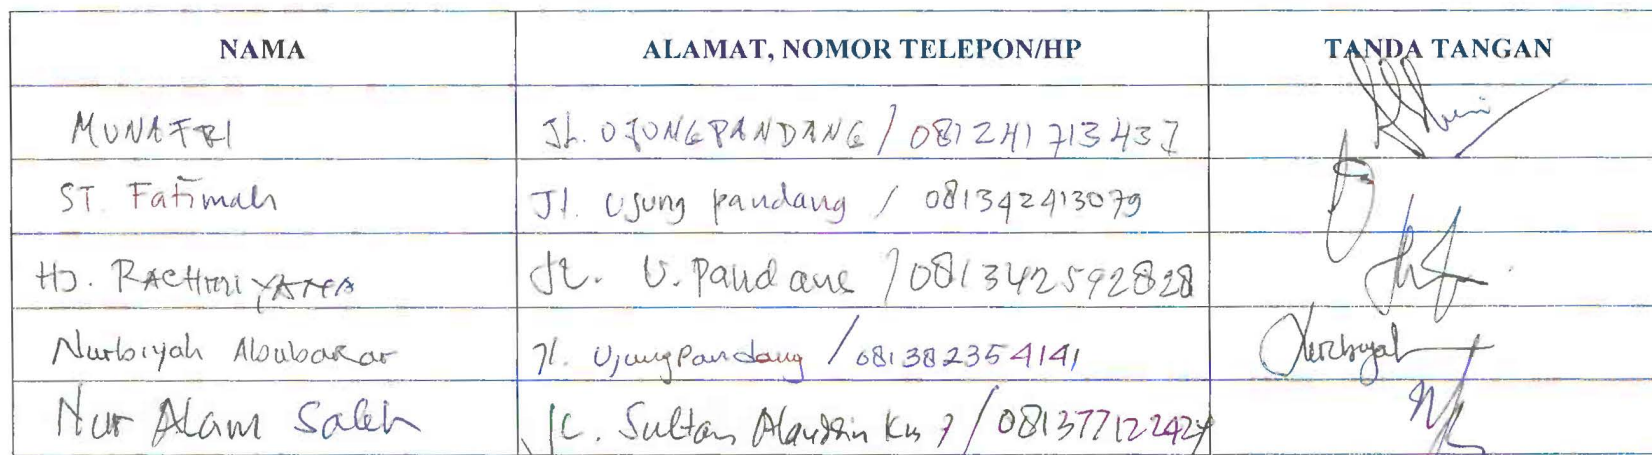 NAMA ALAMAT, NOMOR TELEPON/HP TANDA TANGAN
MUNAFRI Jl. UJUNGPANDANG / 081241713437
ST. Fatimah Jl. Ujung pandang / 081342413079
HJ. Jl. U. Pandang / 081342592828
Nurbiyah Abubakar Jl. Ujung Pandang / 081382354141 Nurbiyah
Nur Alam Saleh Jl. Sultan Alauddin Km 7 / 081377122424